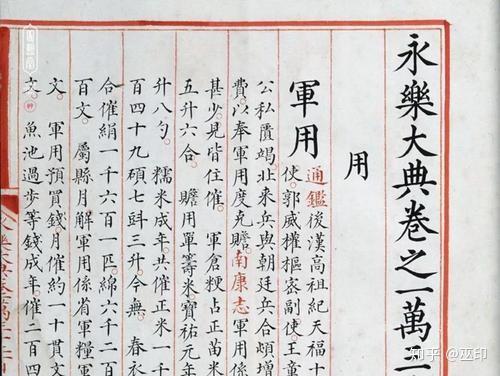 永樂大典卷之一萬
用
軍用
通鑑後漢高祖紀天福十
使郭威權樞密副使王章
公私匱竭北來兵與朝廷兵合頓增
費。以奉軍用度克贍。南康志軍用
甚少。見皆住催。 軍倉粳占正苗米
五升六合。 贍用單籌米。寶祐元年
升八勺。 糯米成年共催正米一千
百四十九碩七㪷三升。今無。 春衣
合催絹一千六百一匹。綿六千二百
百文。 屬縣月解軍用係省軍糧軍
文。 軍用預買錢。月催約一十貫文
文。 魚池過步等錢成年催二百四
知乎 @巫印